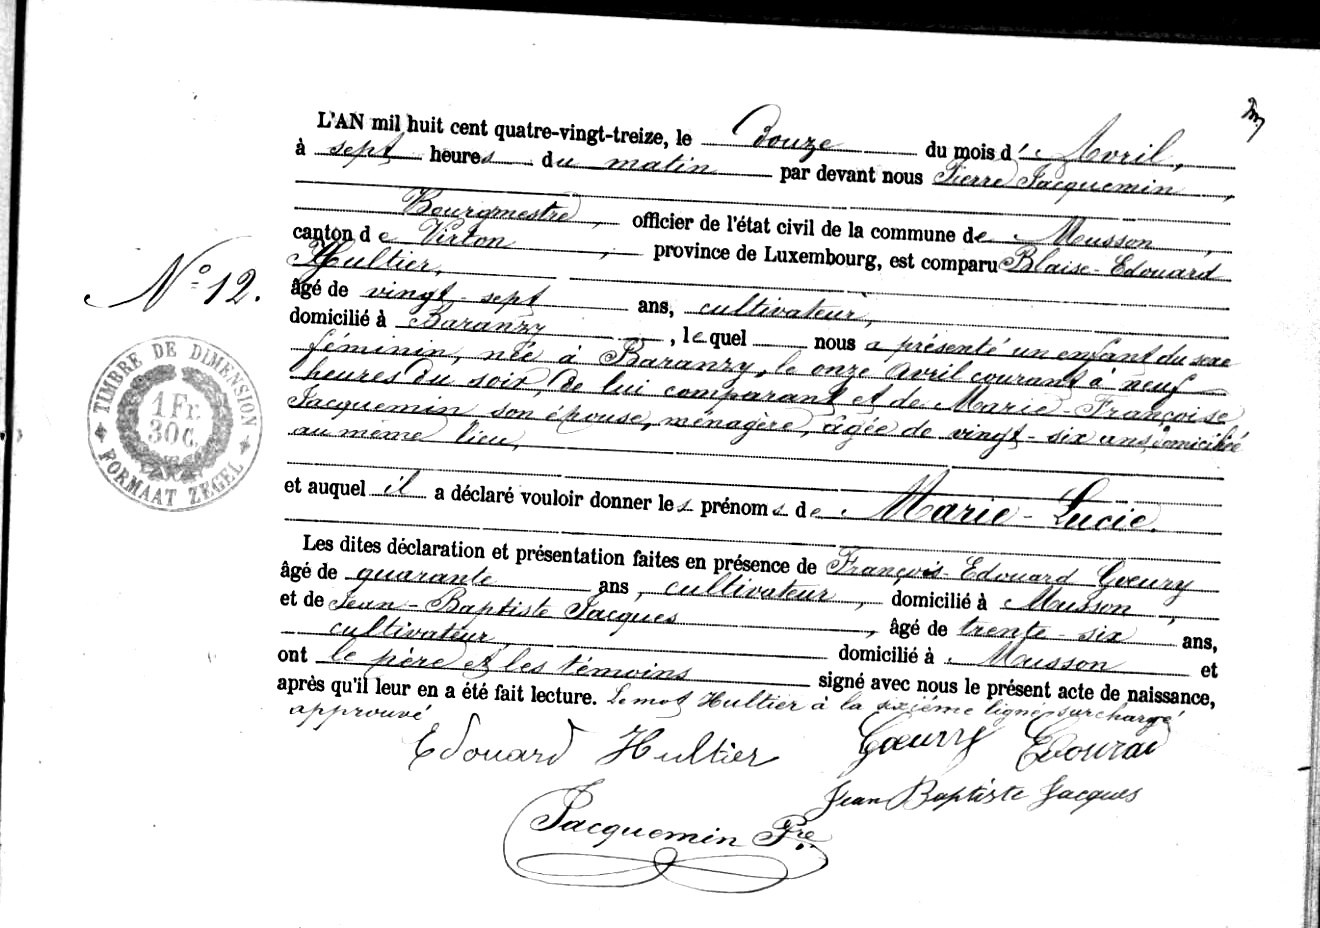 L'AN mil huit cent quatre-vingt-treize, le douze du mois d' Avril,
à sept heures du matin par devant nous Pierre Jacquemin,
Bourgmestre, officier de l'état civil de la commune de Musson,
canton de Virton, province de Luxembourg, est comparu Blaise-Edouard
Hultier,
âgé de vingt-sept ans, cultivateur,
domicilié à Baranzy, lequel nous a présenté un enfant du sexe
féminin, née à Baranzy, le onze avril courant à neuf
heures du soir, de lui comparant et de Marie-Françoise
Jacquemin son épouse, ménagère, âgée de vingt-six ans, domiciliée
au même lieu,
N° 12.
TIMBRE DE DIMENSION
1 Fr.
30 C.
FORMAAT ZEGEL
et auquel il a déclaré vouloir donner les prénoms de Marie-Lucie.
Les dites déclaration et présentation faites en présence de François-Edouard Gœury
âgé de quarante ans, cultivateur, domicilié à Musson,
et de Jean-Baptiste Jacques, âgé de trente-six ans,
cultivateur, domicilié à Musson et
ont le père et les témoins signé avec nous le présent acte de naissance,
après qu'il leur en a été fait lecture. Le mot Hultier à la sixième ligne surchargé
approuvé
Edouard Hultier Gœury Edouard
Jean Baptiste Jacques
Jacquemin Pre